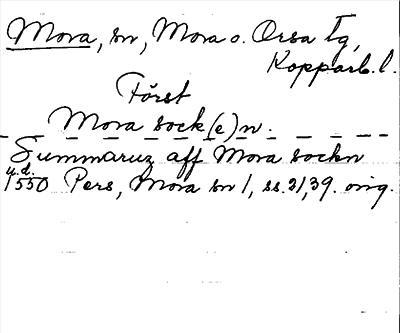 Mora, sn, Mora o. Orsa tg,
Kopparb. l.
Först
Mora sock(e)n.
Summaruz aff Mora sockn
u.d.
1550 Pers, Mora sn 1, ss. 21, 39. orig.